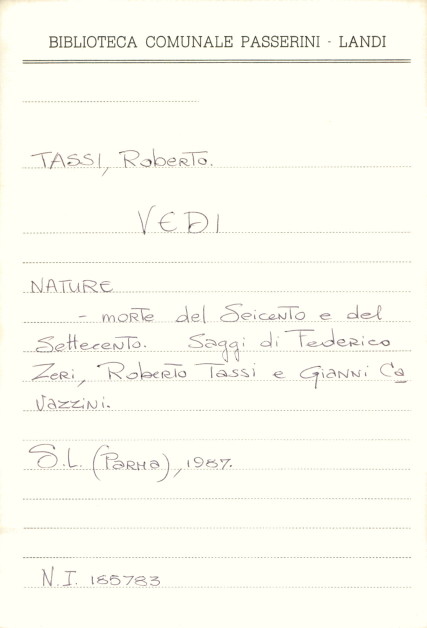 BIBLIOTECA COMUNALE PASSERINI - LANDI
TASSI, Roberto.
VEDI
NATURE
- morte del Seicento e del
Settecento. Saggi di Federico
Zeri, Roberto Tassi e Gianni Ca
vazzini.
S.L. (Parma), 1987.
N.I. 185783